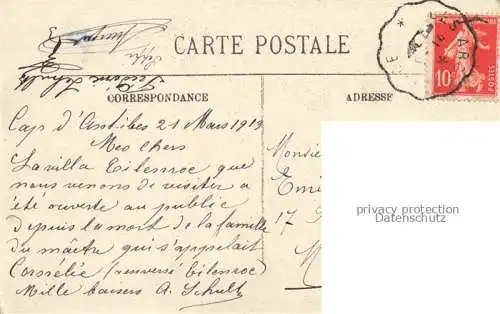 CARTE POSTALE
CORRESPONDANCE
ADRESSE
10
POSTES
Cap d'Antibes 21 Mars 1919
Mes chers
La villa Eilenroc que
nous venons de visiter a
été ouverte au public
depuis la mort de la famille
du maître qui s'appelait
Cornélie (renversé Eilenroc)
Mille baisers A. Schultz
Monsie
Emi
17
privacy protection
Datenschutz